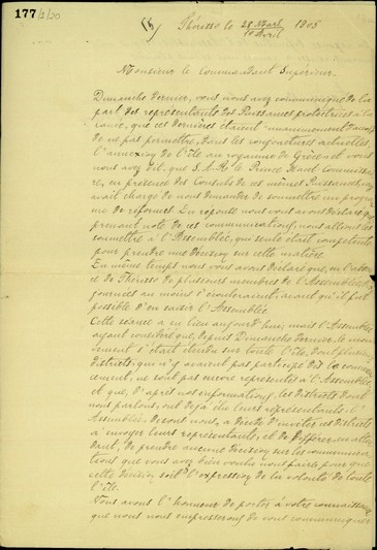 177/2/20
Thérisso le 28 Mars / 10 Avril 1905
Monsieur le Commandant Supérieur.
Dimanche dernier, vous nous avez communiqué de la
part des représentants des Puissances protectrices à la
Canée, que ces dernières étaient unanimement d'accord
de ne pas permettre, dans les conjonctures actuelles,
l'annexion de l'île au royaume de Grèce et vous
avez dit, que S.A.R. le Prince Haut Commissai-
re, en présence des Consuls de ces mêmes Puissances, vous
avait chargé de nous demander de soumettre un program-
me de réformes. En réponse nous vous avons déclaré que
prenant note de ces communications, nous allions les
soumettre à l'Assemblée, qui seule était compétente
pour prendre une décision sur cette matière.
En même temps nous vous avons déclaré que, vu l'absence
de Thérisso de plusieurs membres de l'Assemblée,
journées au moins s'écouleraient, avant qu'il fût
possible d'en saisir l'Assemblée.
Cette séance a eu lieu aujourd'hui; mais l'Assemblée
ayant considéré que, depuis Dimanche dernier, le mou-
vement s'était étendu sur toute l'île, dont plusieurs
districts, qui n'y avaient pas participé dès le commen-
cement, ne sont pas encore représentés à l'Assemblée,
et que, d'après nos informations, les districts dont
nous parlons, ont déjà élu leurs représentants: l'
Assemblée, disons nous, a décidé d'inviter ces districts
à envoyer leurs représentants, et de différer en atten-
dant, de prendre aucune décision sur les communica-
tions que vous avez bien voulu nous faire, pour que
cette décision soit l'expression de la volonté de toute
l'île.
Nous avons l'honneur de porter à votre connaissance
que nous nous empresserons de vous communiquer